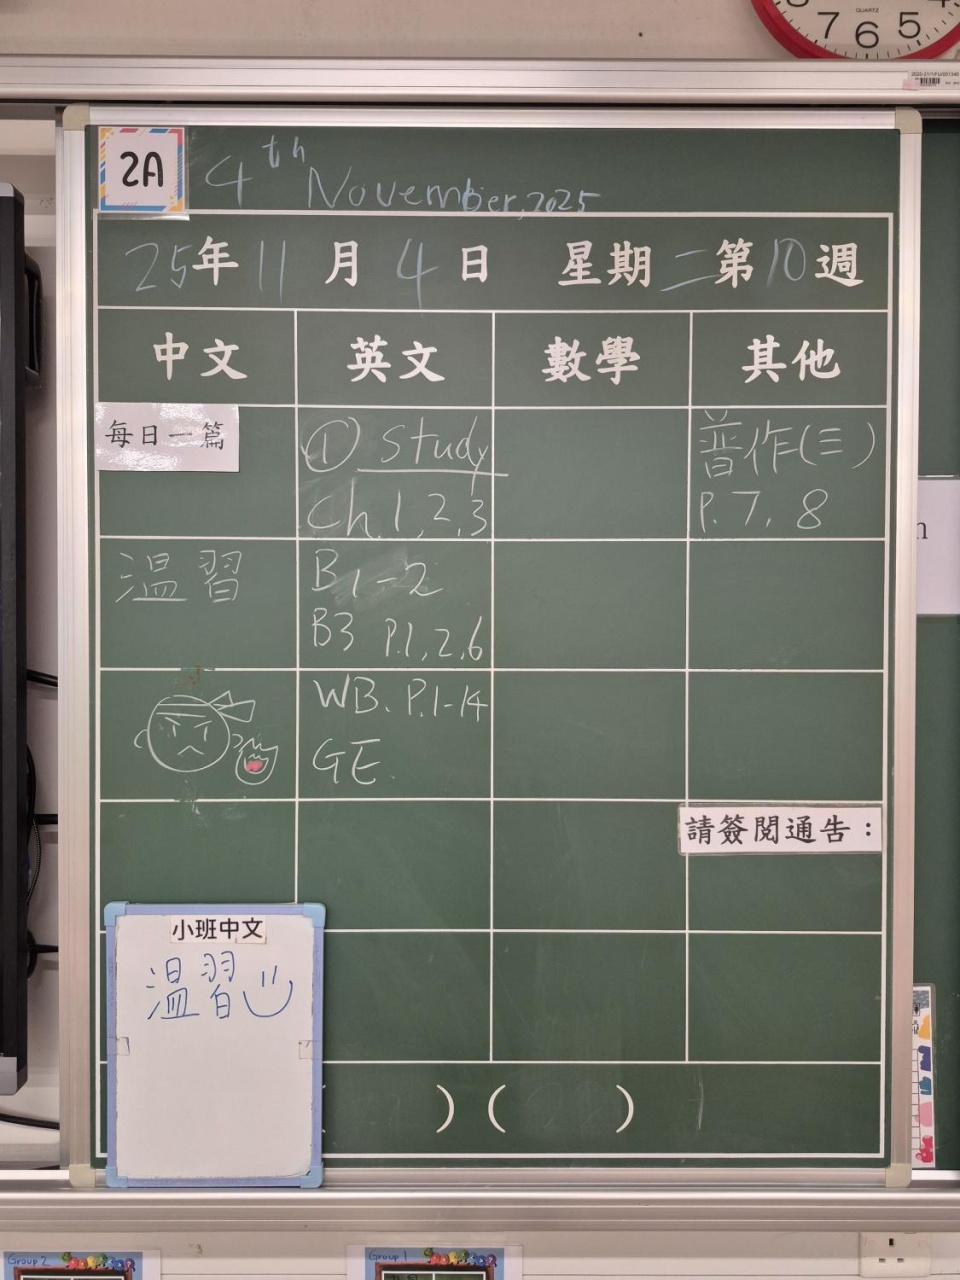 QUARTZ
7 6 5
2A
4th November, 2025
25年 11月 4日 星期二 第10週
中文 英文 數學 其他
每日一篇
① Study
Ch. 1, 2, 3
普作(三)
P. 7, 8
溫習
B1-2
B3 P.1, 2, 6
WB. P.1-14
GE.
請簽閱通告：
小班中文
溫習
) ( )
Group 2
Group 1